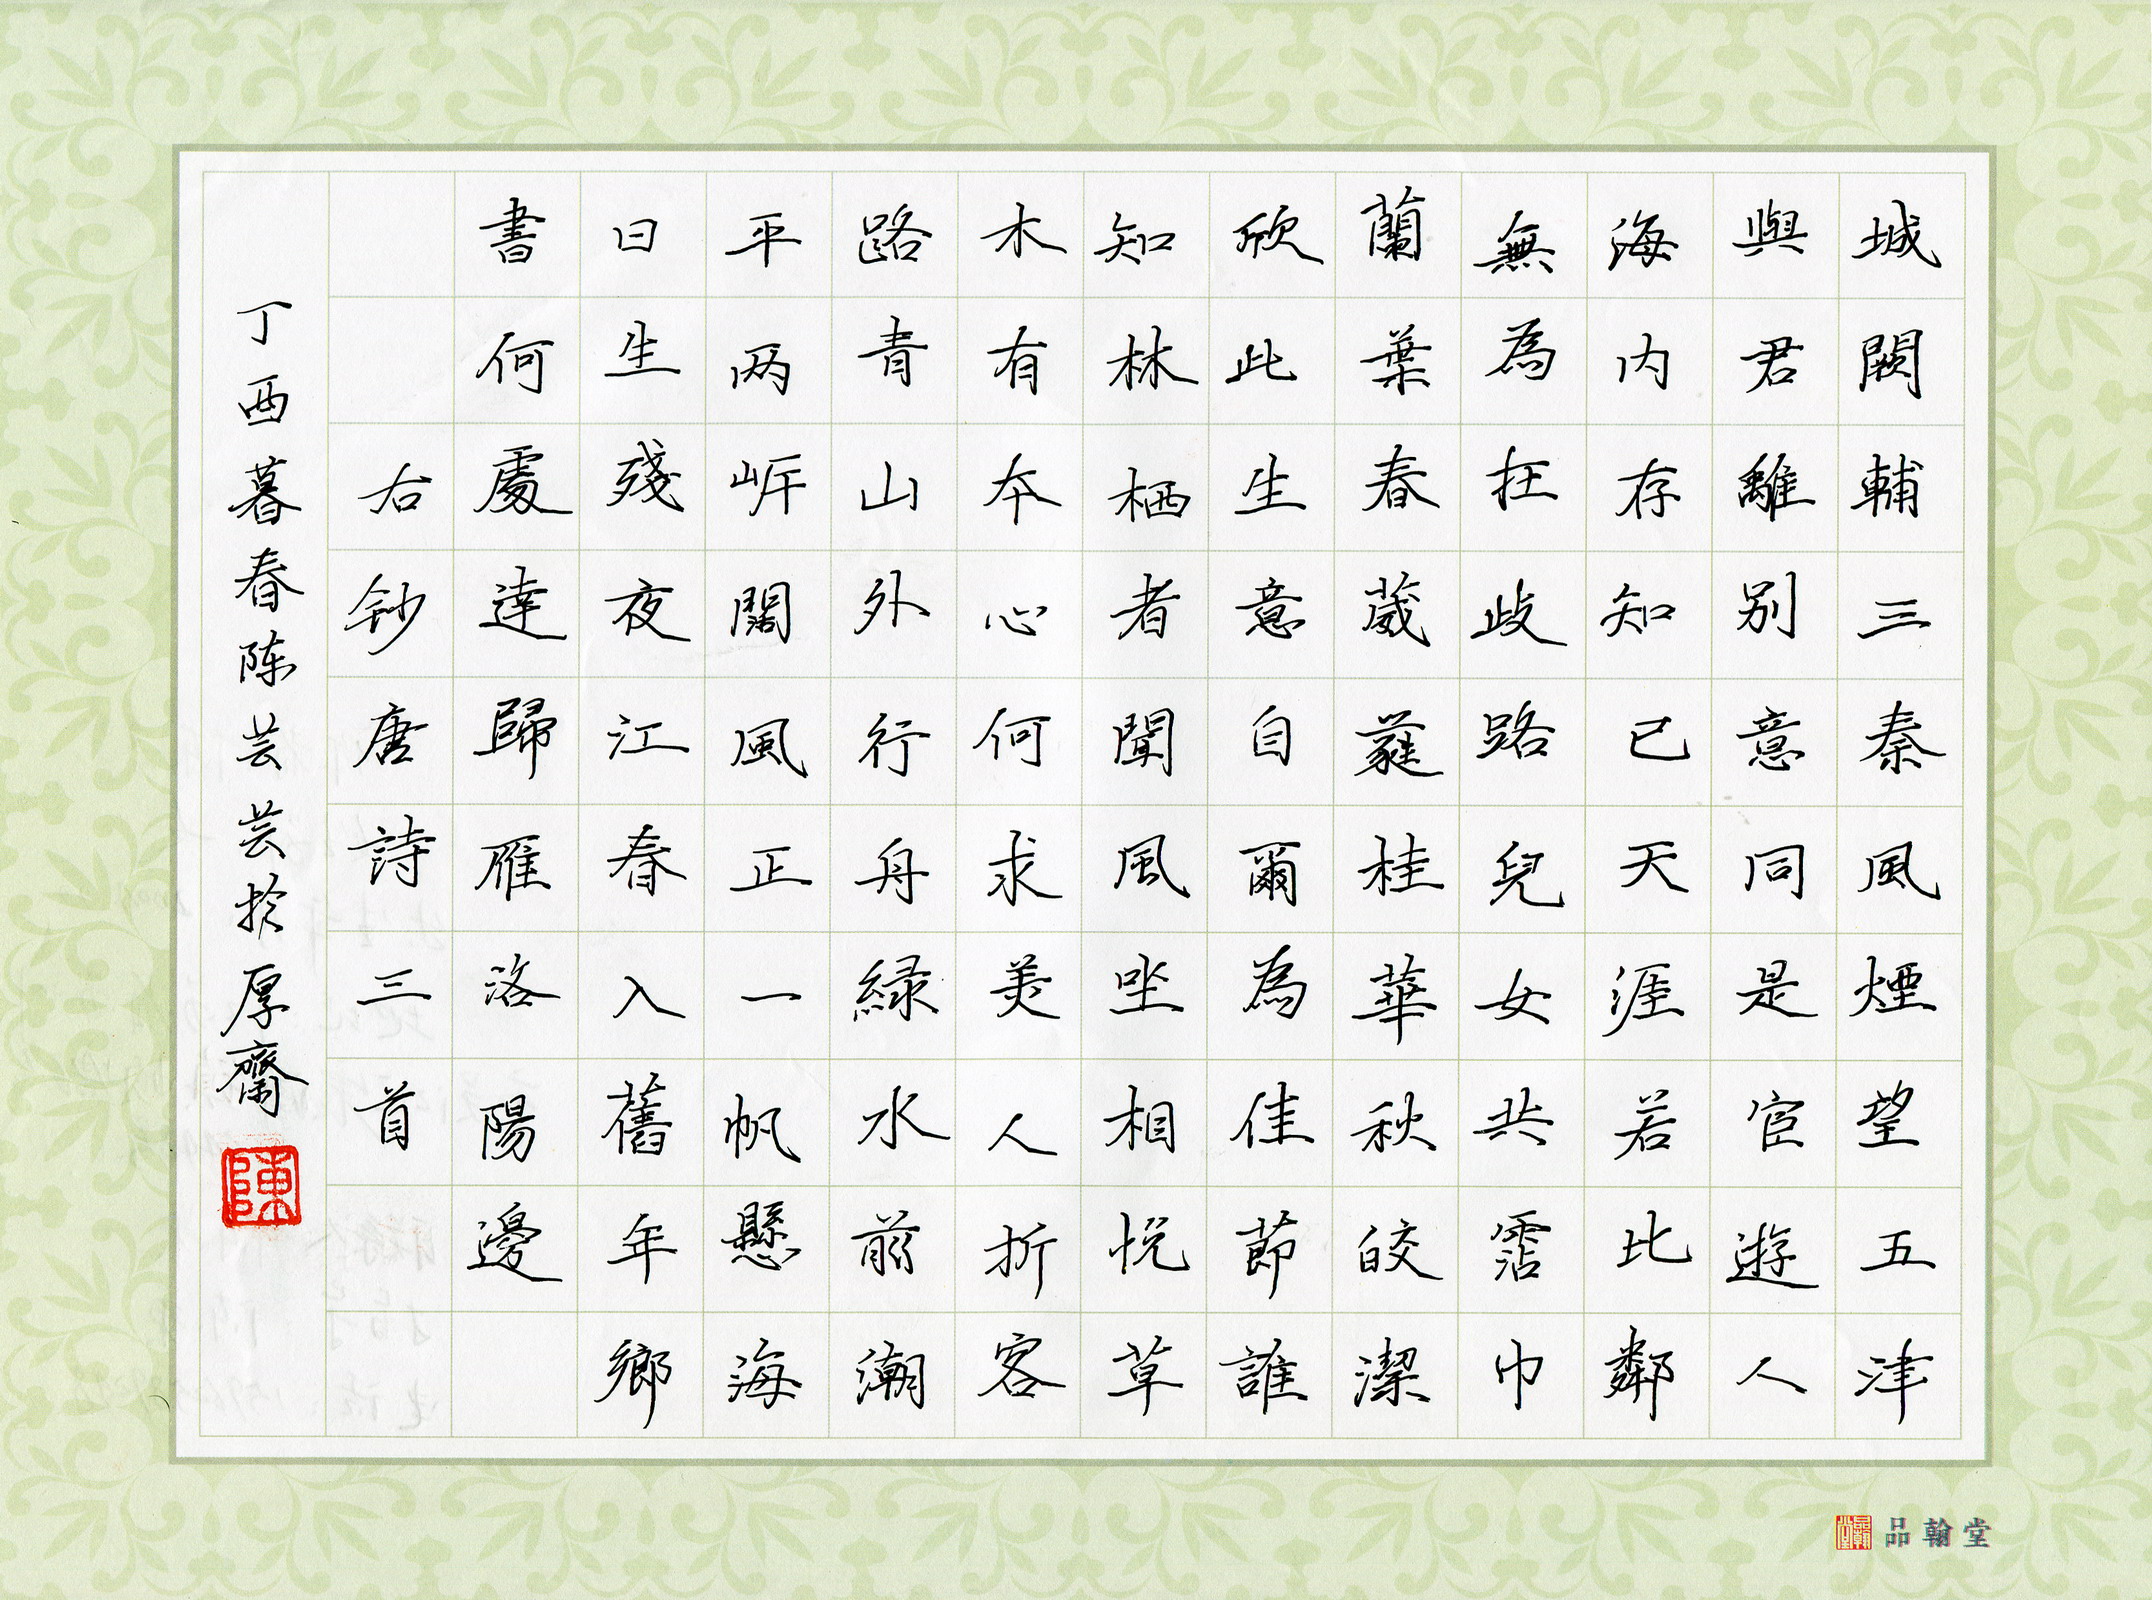 城闕輔三秦風煙望五津
與君離別意同是宦遊人
海内存知已天涯若比鄰
無為在歧路兒女共霑巾
蘭葉春葳蕤桂華秋皎潔
欣此生意自爾為佳節誰
知林栖者聞風坐相悅草
木有本心何求美人折客
路青山外行舟緑水前潮
平两岸闊風正一帆懸海
日生殘夜江春入舊年鄉
書何處達歸雁洛陽邊
右鈔唐詩三首
丁酉暮春陈芸芸於厚齋
陳
品翰堂
品翰堂